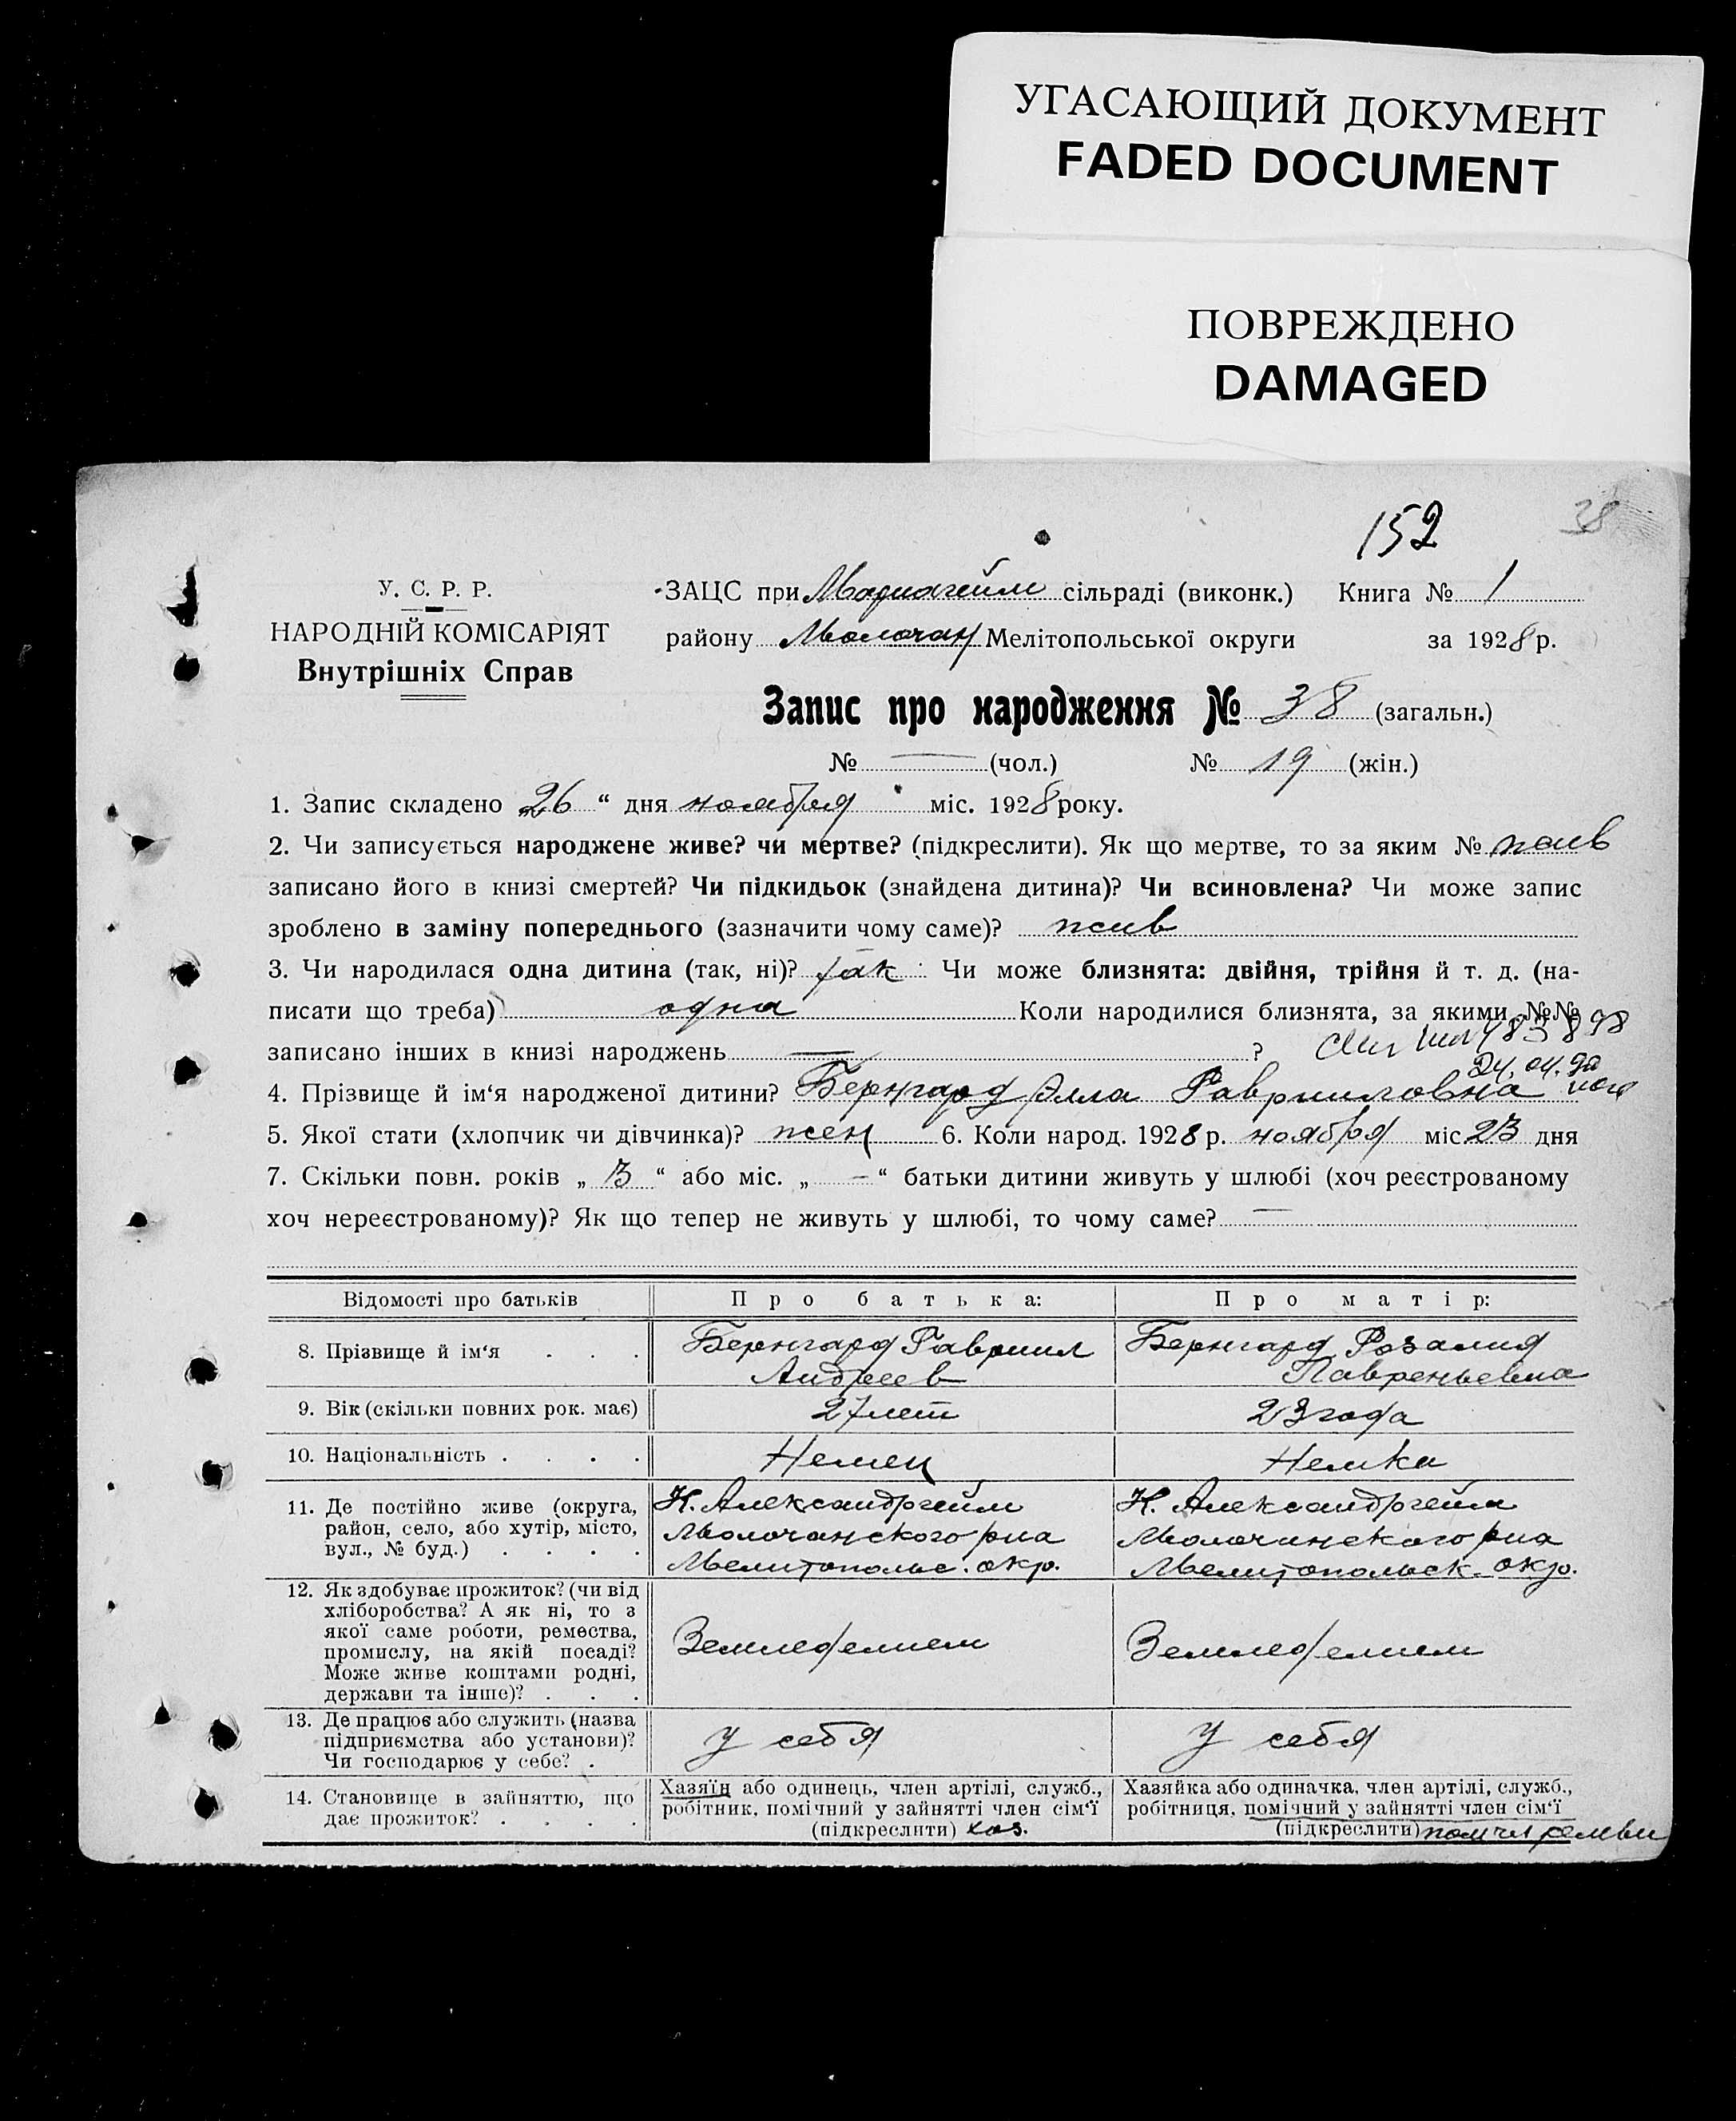 УГАСАЮЩИЙ ДОКУМЕНТ
FADED DOCUMENT
ПОВРЕЖДЕНО
DAMAGED
152
38
У. С. Р. Р.
НАРОДНІЙ КОМІСАРІЯТ
Внутрішніх Справ
ЗАЦС при Мариагейм сільраді (виконк.) Книга № 1
району Молочан Мелітопольської округи за 1928 р.
Запис про народження № 38 (загальн.)
№ — (чол.) № 19 (жін.)
1. Запис складено „26“ дня ноября міс. 1928 року.
2. Чи записується народжене живе? чи мертве? (підкреслити). Як що мертве, то за яким № жив
записано його в книзі смертей? Чи підкидьок (знайдена дитина)? Чи всиновлена? Чи може запис
зроблено в заміну попереднього (зазначити чому саме)? жив
3. Чи народилася одна дитина (так, ні)? так Чи може близнята: двійня, трійня й т. д. (на-
писати що треба) одна Коли народилися близнята, за якими №№
записано інших в книзі народжень — ?
24.04.92
4. Прізвище й ім‘я народженої дитини? Бернгард Элла Гавриловна
5. Якої стати (хлопчик чи дівчинка)? жен 6. Коли народ. 1928 р. ноября міс 23 дня
7. Скільки повн. років „ 3 “ або міс. „ — “ батьки дитини живуть у шлюбі (хоч реєстрованому
хоч нереєстрованому)? Як що тепер не живуть у шлюбі, то чому саме? —
Відомості про батьків Про батька: Про матір:
8. Прізвище й ім‘я . . . Бернгард Гавриил Бернгард Розалия
Андреев Лавреньевна
9. Вік (скільки повних рок. має) 27 лет 23 года
10. Національність . . . . Немец Немка
11. Де постійно живе (округа, Н. Александргейм Н. Александргейм
район, село, або хутір, місто, Молочанского р-на Молочанского р-на
вул., № буд.) . . . . Мелитопольс. окр. Мелитопольск. окр.
12. Як здобуває прожиток? (чи від
хліборобства? А як ні, то з
якої саме роботи, ремества,
промислу, на якій посаді? Земледелием Земледелием
Може живе коштами родні,
держави та інше)? . . .
13. Де працює або служить (назва
підприємства або установи)? у себя у себя
Чи господарює у себе? .
14. Становище в зайняттю, що Хазяїн або одинець, член артілі, служб., Хазяйка або одиначка, член артілі, служб.,
дає прожиток? . . . . робітник, помічний у зайнятті член сім‘ї робітниця, помічний у зайнятті член сім‘ї
(підкреслити) хоз. (підкреслити) пом чл семьи